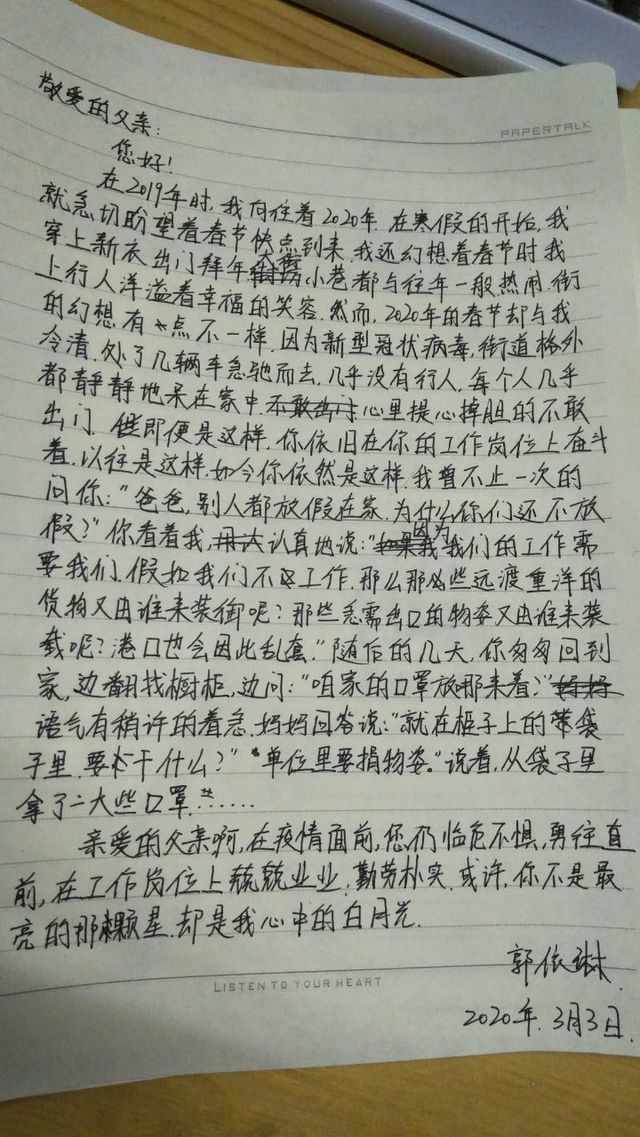 PAPERTALK
敬爱的父亲:
您好!
在2019年时,我向往着2020年.在寒假的开始,我
就急切盼望着春节快点到来.我还幻想着春节时我
穿上新衣出门拜年,大街小巷都与往年一般热闹.街
上行人洋溢着幸福的笑容.然而,2020年的春节却与我
的幻想有一点不一样.因为新型冠状病毒,街道格外
冷清.处了几辆车急驰而去,几乎没有行人,每个人几乎
都静静地呆在家中.心里提心掉胆的不敢
出门.即便是这样,你依旧在你的工作岗位上奋斗
着.以往是这样.如今你依然是这样.我曾不止一次的
问你:“爸爸,别人都放假在家.为什么你们还不放
假?”你看着我,认真地说:“因为我们的工作需
要我们.假如我们不工作.那么那些远渡重洋的
货物又由谁来装御呢?那些急需出口的物姿又由谁来装
载呢?港口也会因此乱套.”随后的几天,你匆匆回到
家,边翻找橱柜,边问:“咱家的口罩放哪来着?”
语气有稍许的着急.妈妈回答说:“就在柜子上的袋
子里.要干什么?”“单位里要捐物姿.”说着,从袋子里
拿了一大些口罩......
亲爱的父亲啊,在疫情面前,您仍临危不惧,勇往直
前,在工作岗位上兢兢业业.勤劳朴实.或许,你不是最
亮的那颗星.却是我心中的白月光.
郭依琳.
LISTEN TO YOUR HEART
2020年.3月3日.